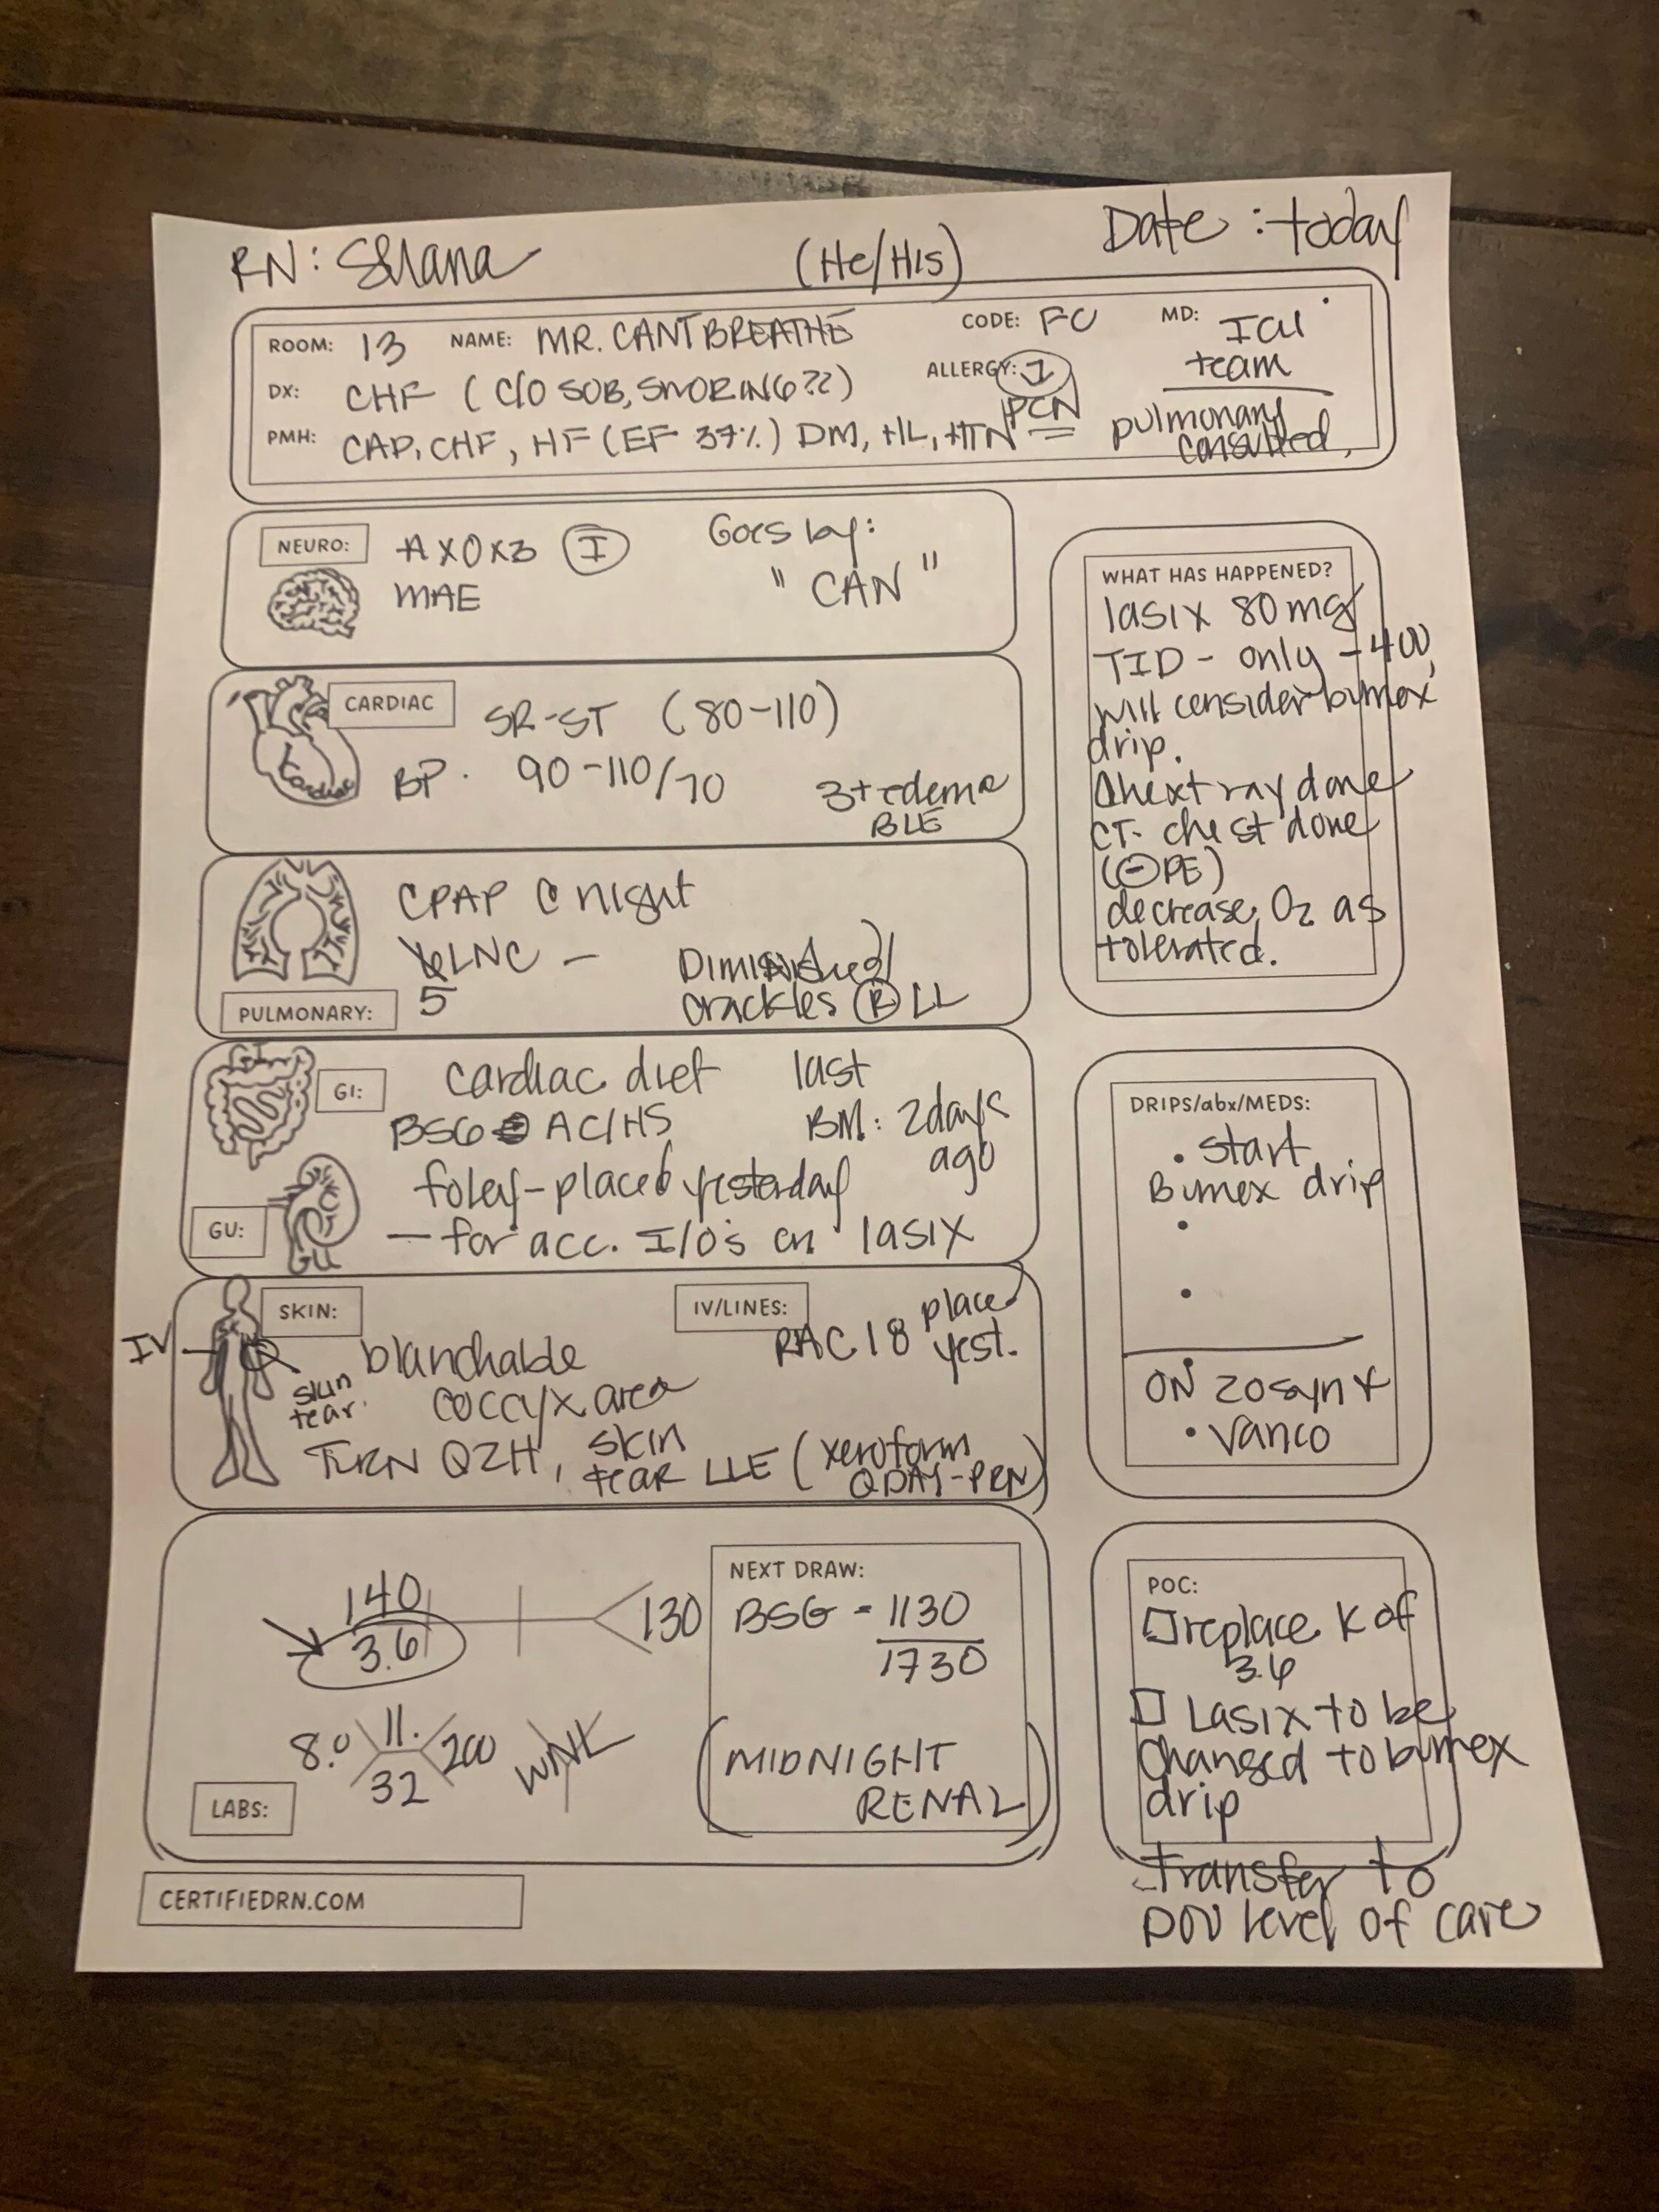 RN: Shana (He/His) Date: today
ROOM: 13 NAME: MR. CANTBREATHE CODE: FC MD: ICU team
DX: CHF (C/O SOB, SNORING??) ALLERGY: I PCN
PMH: CAD, CHF, HF (EF 37%) DM, HL, HTN pulmonary consulted.
NEURO: AXOX3 I Goes by:
MAE "CAN"
CARDIAC SR-ST (80-110)
Kardiac
BP. 90-110/70 3+ edema
BLE
CPAP @ night
6LNC - Diminished/
5 crackles R LL
PULMONARY:
GI
GI: cardiac diet last
BSG AC/HS BM: 2days
ago
foley-placed yesterday
GU: - for acc. I/O's on lasix
GU
SKIN: IV/LINES: placed
IV blanchable RAC 18 yest.
skin coccyx area
tear.
TURN Q2H, skin
tear LLE (xeroform
QDAY-PRN)
140
3.6 130
8.0 11. 200 WNL
32
LABS:
NEXT DRAW:
BSG - 1130
1730
(MIDNIGHT
RENAL)
CERTIFIEDRN.COM
WHAT HAS HAPPENED?
lasix 80mg
TID - only -400,
will consider bumex
drip.
Chext ray done
CT- chest done
(- PE)
decrease O2 as
tolerated.
DRIPS/abx/MEDS:
• start
Bumex drip
•
•
•
ON zosyn +
• vanco
POC:
□ replace K of
3.6
□ Lasix to be
changed to bumex
drip
transfer to
DOU level of care